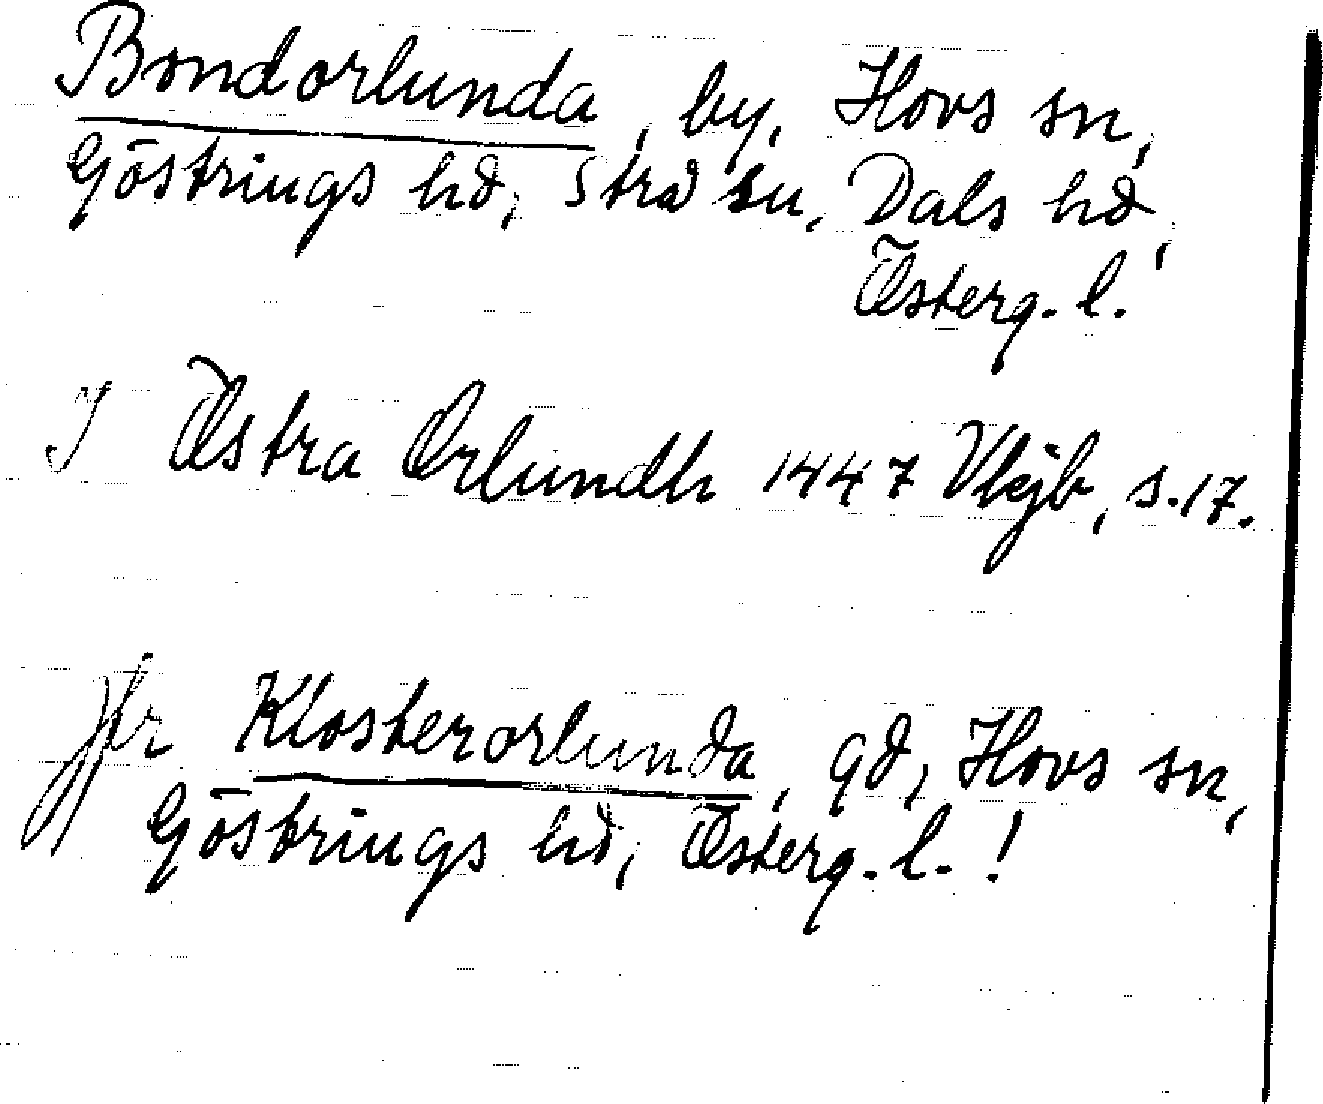 Bondorlunda, by, Hovs sn,
Göstrings hd, Stra sn, Dals hd,
Österg. l.
I Østra Ørlundh 1447 Vkjb, s. 17.
jfr Klosterorlunda, gd, Hovs sn,
Göstrings hd, Österg. l. !